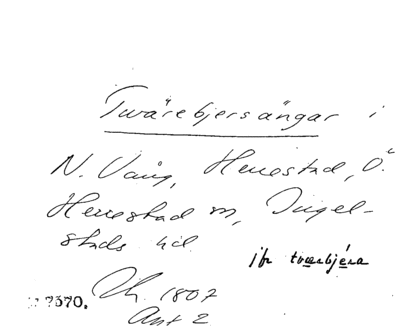 Tvärebjersängar i
N. Vång, Herrestad, Ö.
Herrestad m, Ingel-
stads hd.
jfr tværbjéra
7370. Lh. 1807
Akt 2